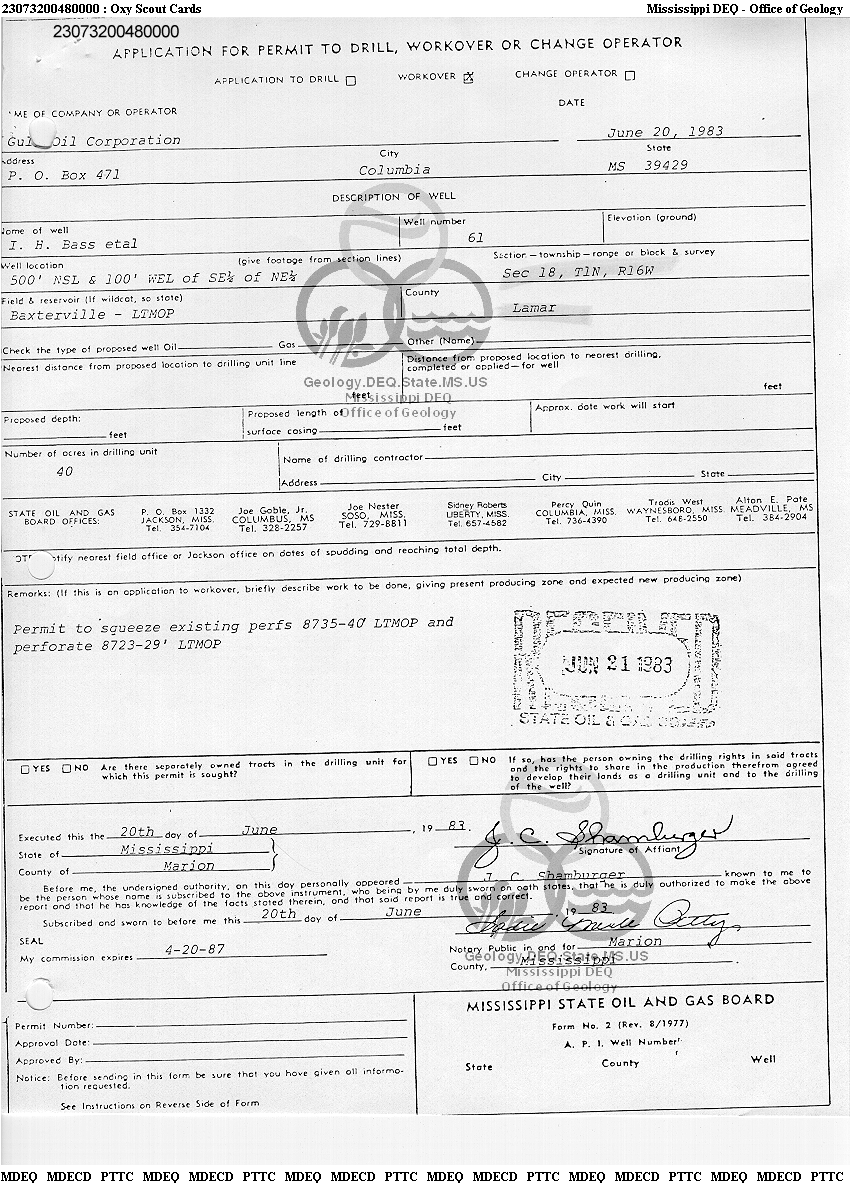 23073200480000 : Oxy Scout Cards Mississippi DEQ - Office of Geology
23073200480000
APPLICATION FOR PERMIT TO DRILL, WORKOVER OR CHANGE OPERATOR
APPLICATION TO DRILL WORKOVER X CHANGE OPERATOR
ME OF COMPANY OR OPERATOR DATE
Gulf Oil Corporation June 20, 1983
Address City State
P. O. Box 471 Columbia MS 39429
DESCRIPTION OF WELL
Name of well Well number Elevation (ground)
I. H. Bass etal 61
Well location (give footage from section lines) Section—township—range or block & survey
500' NSL & 100' WEL of SE¼ of NE¼ Sec 18, T1N, R16W
Field & reservoir (If wildcat, so state) County
Baxterville - LTMOP Lamar
Check the type of proposed well Oil Gas Other (Name)
Nearest distance from proposed location to drilling unit line Distance from proposed location to nearest drilling,
completed or applied—for well
feet feet
Geology.DEQ.State.MS.US
Mississippi DEQ
Office of Geology
Proposed depth: Proposed length of Approx. date work will start
feet surface casing feet
Number of acres in drilling unit Name of drilling contractor
40
Address City State
STATE OIL AND GAS P. O. Box 1332 Joe Goble, Jr. Joe Nester Sidney Roberts Percy Quin Tradis West Alton E. Pate
BOARD OFFICES: JACKSON, MISS. COLUMBUS, MS SOSO, MISS. UBERTY, MISS. COLUMBIA, MISS. WAYNESBORO, MISS. MEADVILLE, MS
Tel. 354-7104 Tel. 328-2257 Tel. 729-8811 Tel. 657-4582 Tel. 736-4390 Tel. 648-2550 Tel. 384-2904
notify nearest field office or Jackson office on dates of spudding and reaching total depth.
Remarks: (If this is an application to workover, briefly describe work to be done, giving present producing zone and expected new producing zone)
Permit to squeeze existing perfs 8735-40' LTMOP and
perforate 8723-29' LTMOP
RECEIVED
JUN 21 1983
STATE OIL & GAS BOARD
YES NO Are there separately owned tracts in the drilling unit for
which this permit is sought?
YES NO If so, has the person owning the drilling rights in said tracts
and the rights to share in the production therefrom agreed
to develop their lands as a drilling unit and to the drilling
of the well?
Executed this the 20th day of June , 19 83.
State of Mississippi J. C. Shamburger
Signature of Affiant
County of Marion
Before me, the undersigned authority, on this day personally appeared J. C. Shamburger known to me to
be the person whose name is subscribed to the above instrument, who being by me duly sworn on oath states, that he is duly authorized to make the above
report and that he has knowledge of the facts stated therein, and that said report is true and correct.
Subscribed and sworn to before me this 20th day of June 19 83
SEAL Notary Public in and for Marion
My commission expires 4-20-87 County, Mississippi
Geology.DEQ.State.MS.US
Mississippi DEQ
Office of Geology
MISSISSIPPI STATE OIL AND GAS BOARD
Permit Number: Form No. 2 (Rev. 8/1977)
Approval Date: A. P. I. Well Number
Approved By: State County Well
Notice: Before sending in this form be sure that you have given all informa-
tion requested.
See Instructions on Reverse Side of Form
MDEQ MDECD PTTC MDEQ MDECD PTTC MDEQ MDECD PTTC MDEQ MDECD PTTC MDEQ MDECD PTTC MDEQ MDECD PTTC